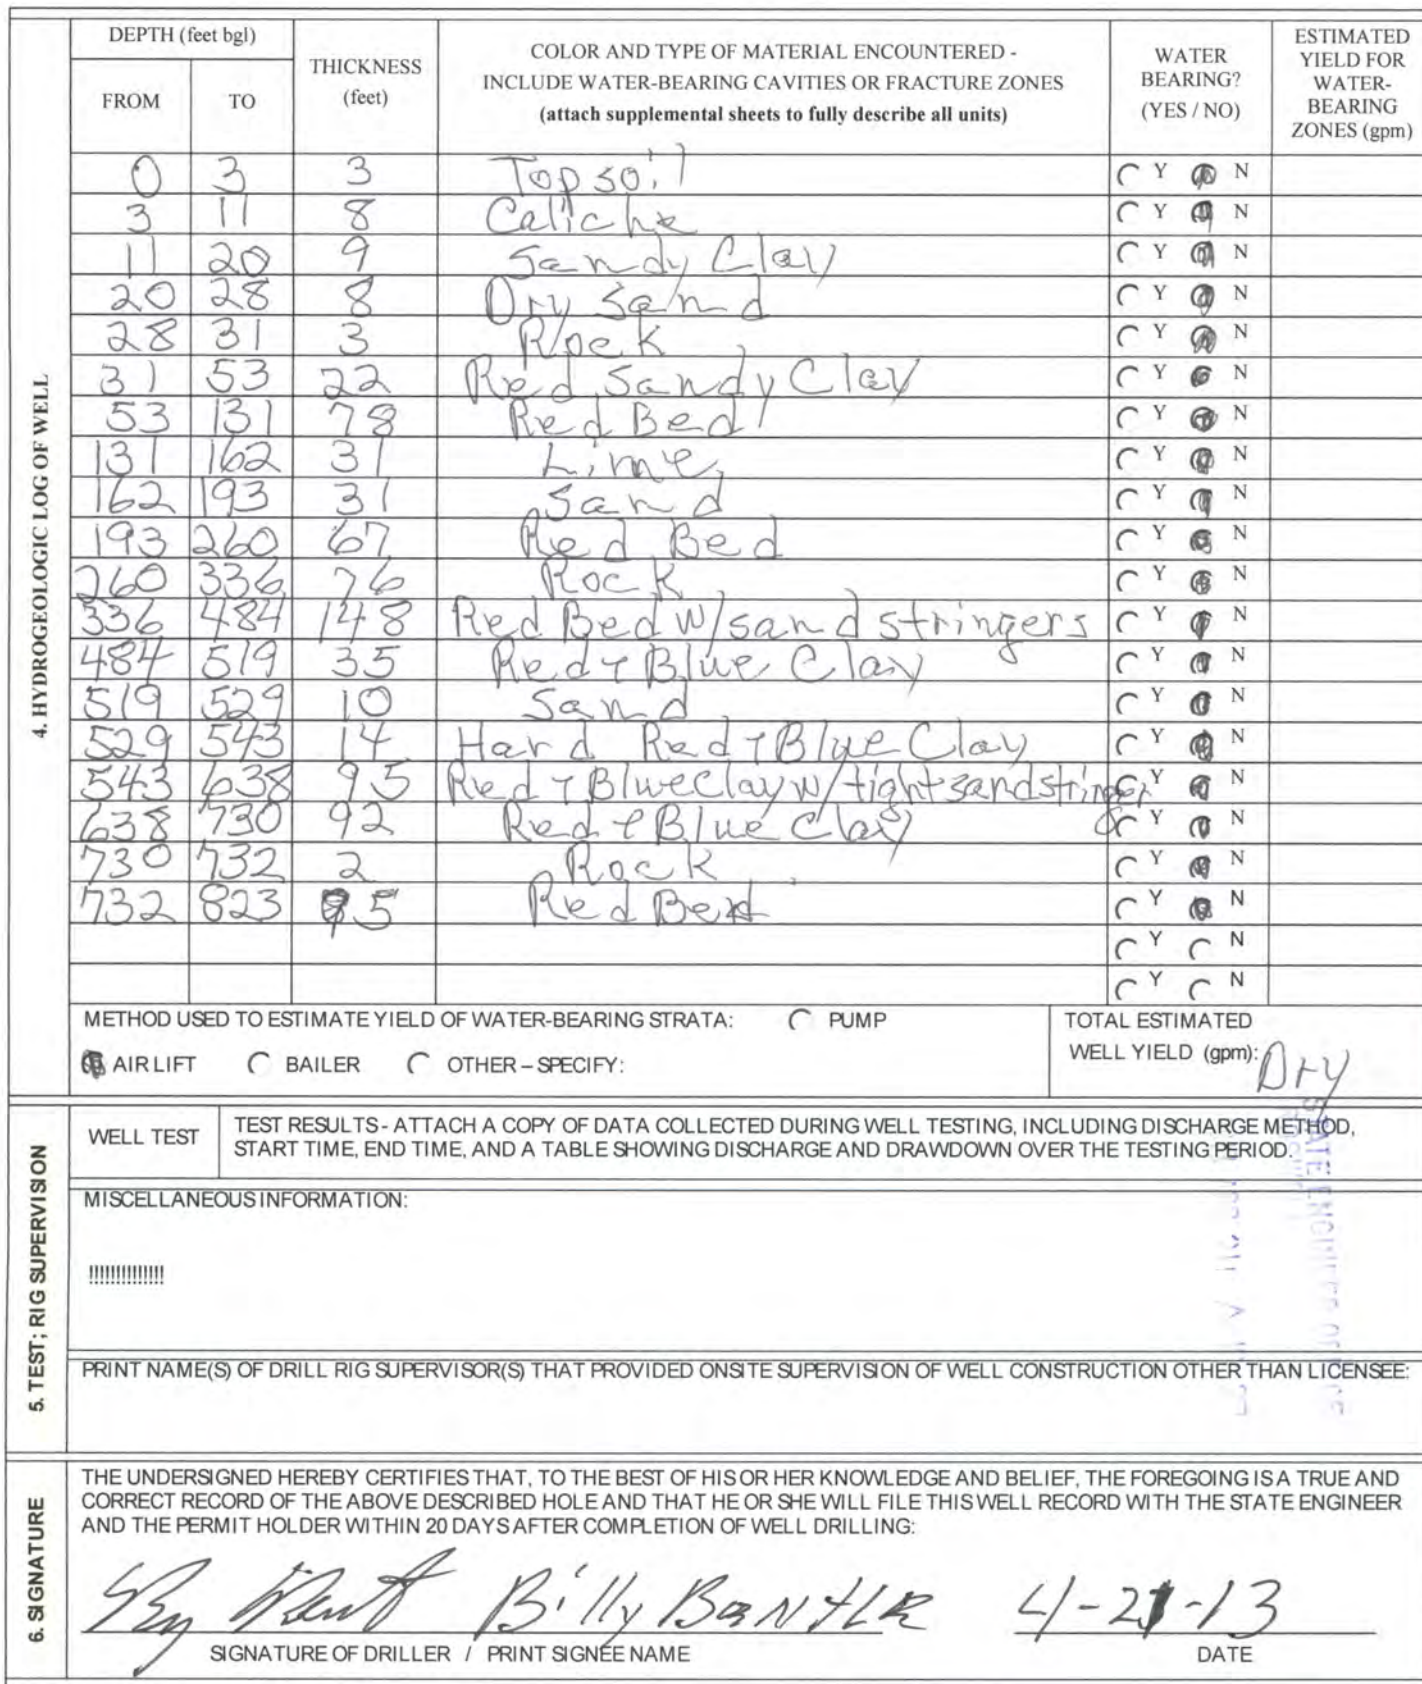 DEPTH (feet bgl)
FROM TO
THICKNESS (feet)
COLOR AND TYPE OF MATERIAL ENCOUNTERED -
INCLUDE WATER-BEARING CAVITIES OR FRACTURE ZONES
(attach supplemental sheets to fully describe all units)
WATER BEARING? (YES / NO)
ESTIMATED YIELD FOR WATER-BEARING ZONES (gpm)
4. HYDROGEOLOGIC LOG OF WELL
0 3 3 Topsoil Y N
3 11 8 Caliche Y N
11 20 9 Sandy Clay Y N
20 28 8 Dry Sand Y N
28 31 3 Rock Y N
31 53 22 Red Sandy Clay Y N
53 131 78 Red Bed Y N
131 162 31 Lime Y N
162 193 31 Sand Y N
193 260 67 Red Bed Y N
260 336 76 Rock Y N
336 484 148 Red Bed w/sand stringers Y N
484 519 35 Red + Blue Clay Y N
519 529 10 Sand Y N
529 543 14 Hard Red + Blue Clay Y N
543 638 95 Red + Blue Clay w/ tight sand stringer Y N
638 730 92 Red + Blue Clay Y N
730 732 2 Rock Y N
732 823 95 Red Bed Y N
Y N
Y N
METHOD USED TO ESTIMATE YIELD OF WATER-BEARING STRATA: PUMP
AIR LIFT BAILER OTHER – SPECIFY:
TOTAL ESTIMATED
WELL YIELD (gpm): Dry
5. TEST; RIG SUPERVISION
WELL TEST
TEST RESULTS - ATTACH A COPY OF DATA COLLECTED DURING WELL TESTING, INCLUDING DISCHARGE METHOD,
START TIME, END TIME, AND A TABLE SHOWING DISCHARGE AND DRAWDOWN OVER THE TESTING PERIOD.
MISCELLANEOUS INFORMATION:
!!!!!!!!!!!!!!
STATE ENGINEER OFFICE
PRINT NAME(S) OF DRILL RIG SUPERVISOR(S) THAT PROVIDED ONSITE SUPERVISION OF WELL CONSTRUCTION OTHER THAN LICENSEE:
6. SIGNATURE
THE UNDERSIGNED HEREBY CERTIFIES THAT, TO THE BEST OF HIS OR HER KNOWLEDGE AND BELIEF, THE FOREGOING IS A TRUE AND
CORRECT RECORD OF THE ABOVE DESCRIBED HOLE AND THAT HE OR SHE WILL FILE THIS WELL RECORD WITH THE STATE ENGINEER
AND THE PERMIT HOLDER WITHIN 20 DAYS AFTER COMPLETION OF WELL DRILLING:
Billy 4-21-13
SIGNATURE OF DRILLER / PRINT SIGNEE NAME DATE